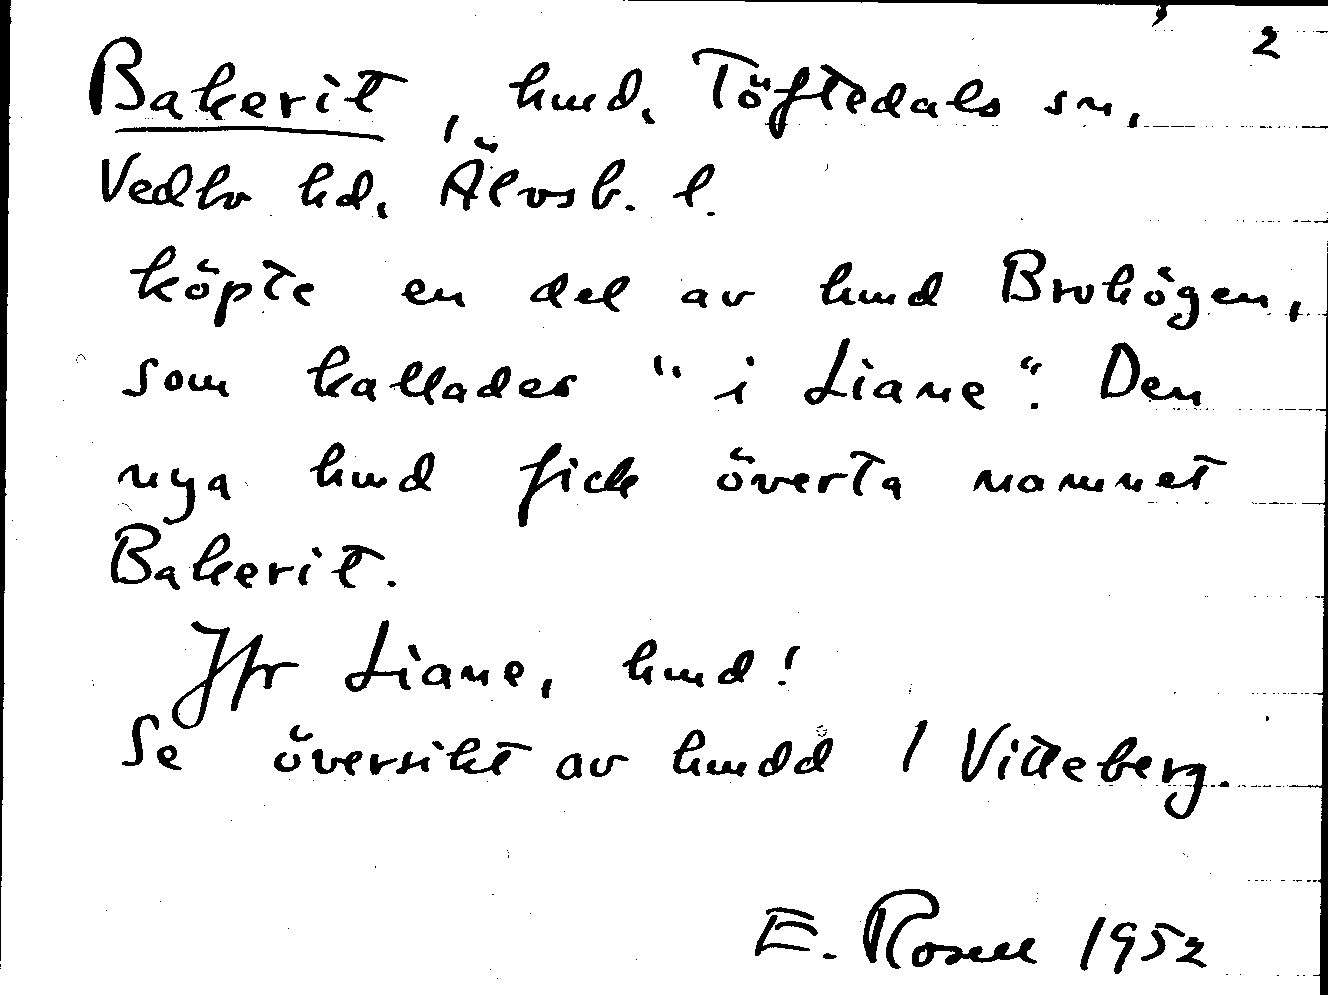 2
Bakerit, hmd. Töftedals sn,
Vedbo hd, Älvsb. l.
köpte en del av hmd Brohögen,
som kallades "i Liane". Den
nya hmd fick överta namnet
Bakerit.
Jfr Liane, hmd!
Se översikt av hmdd / Vitteberg.
E. Rosell 1952